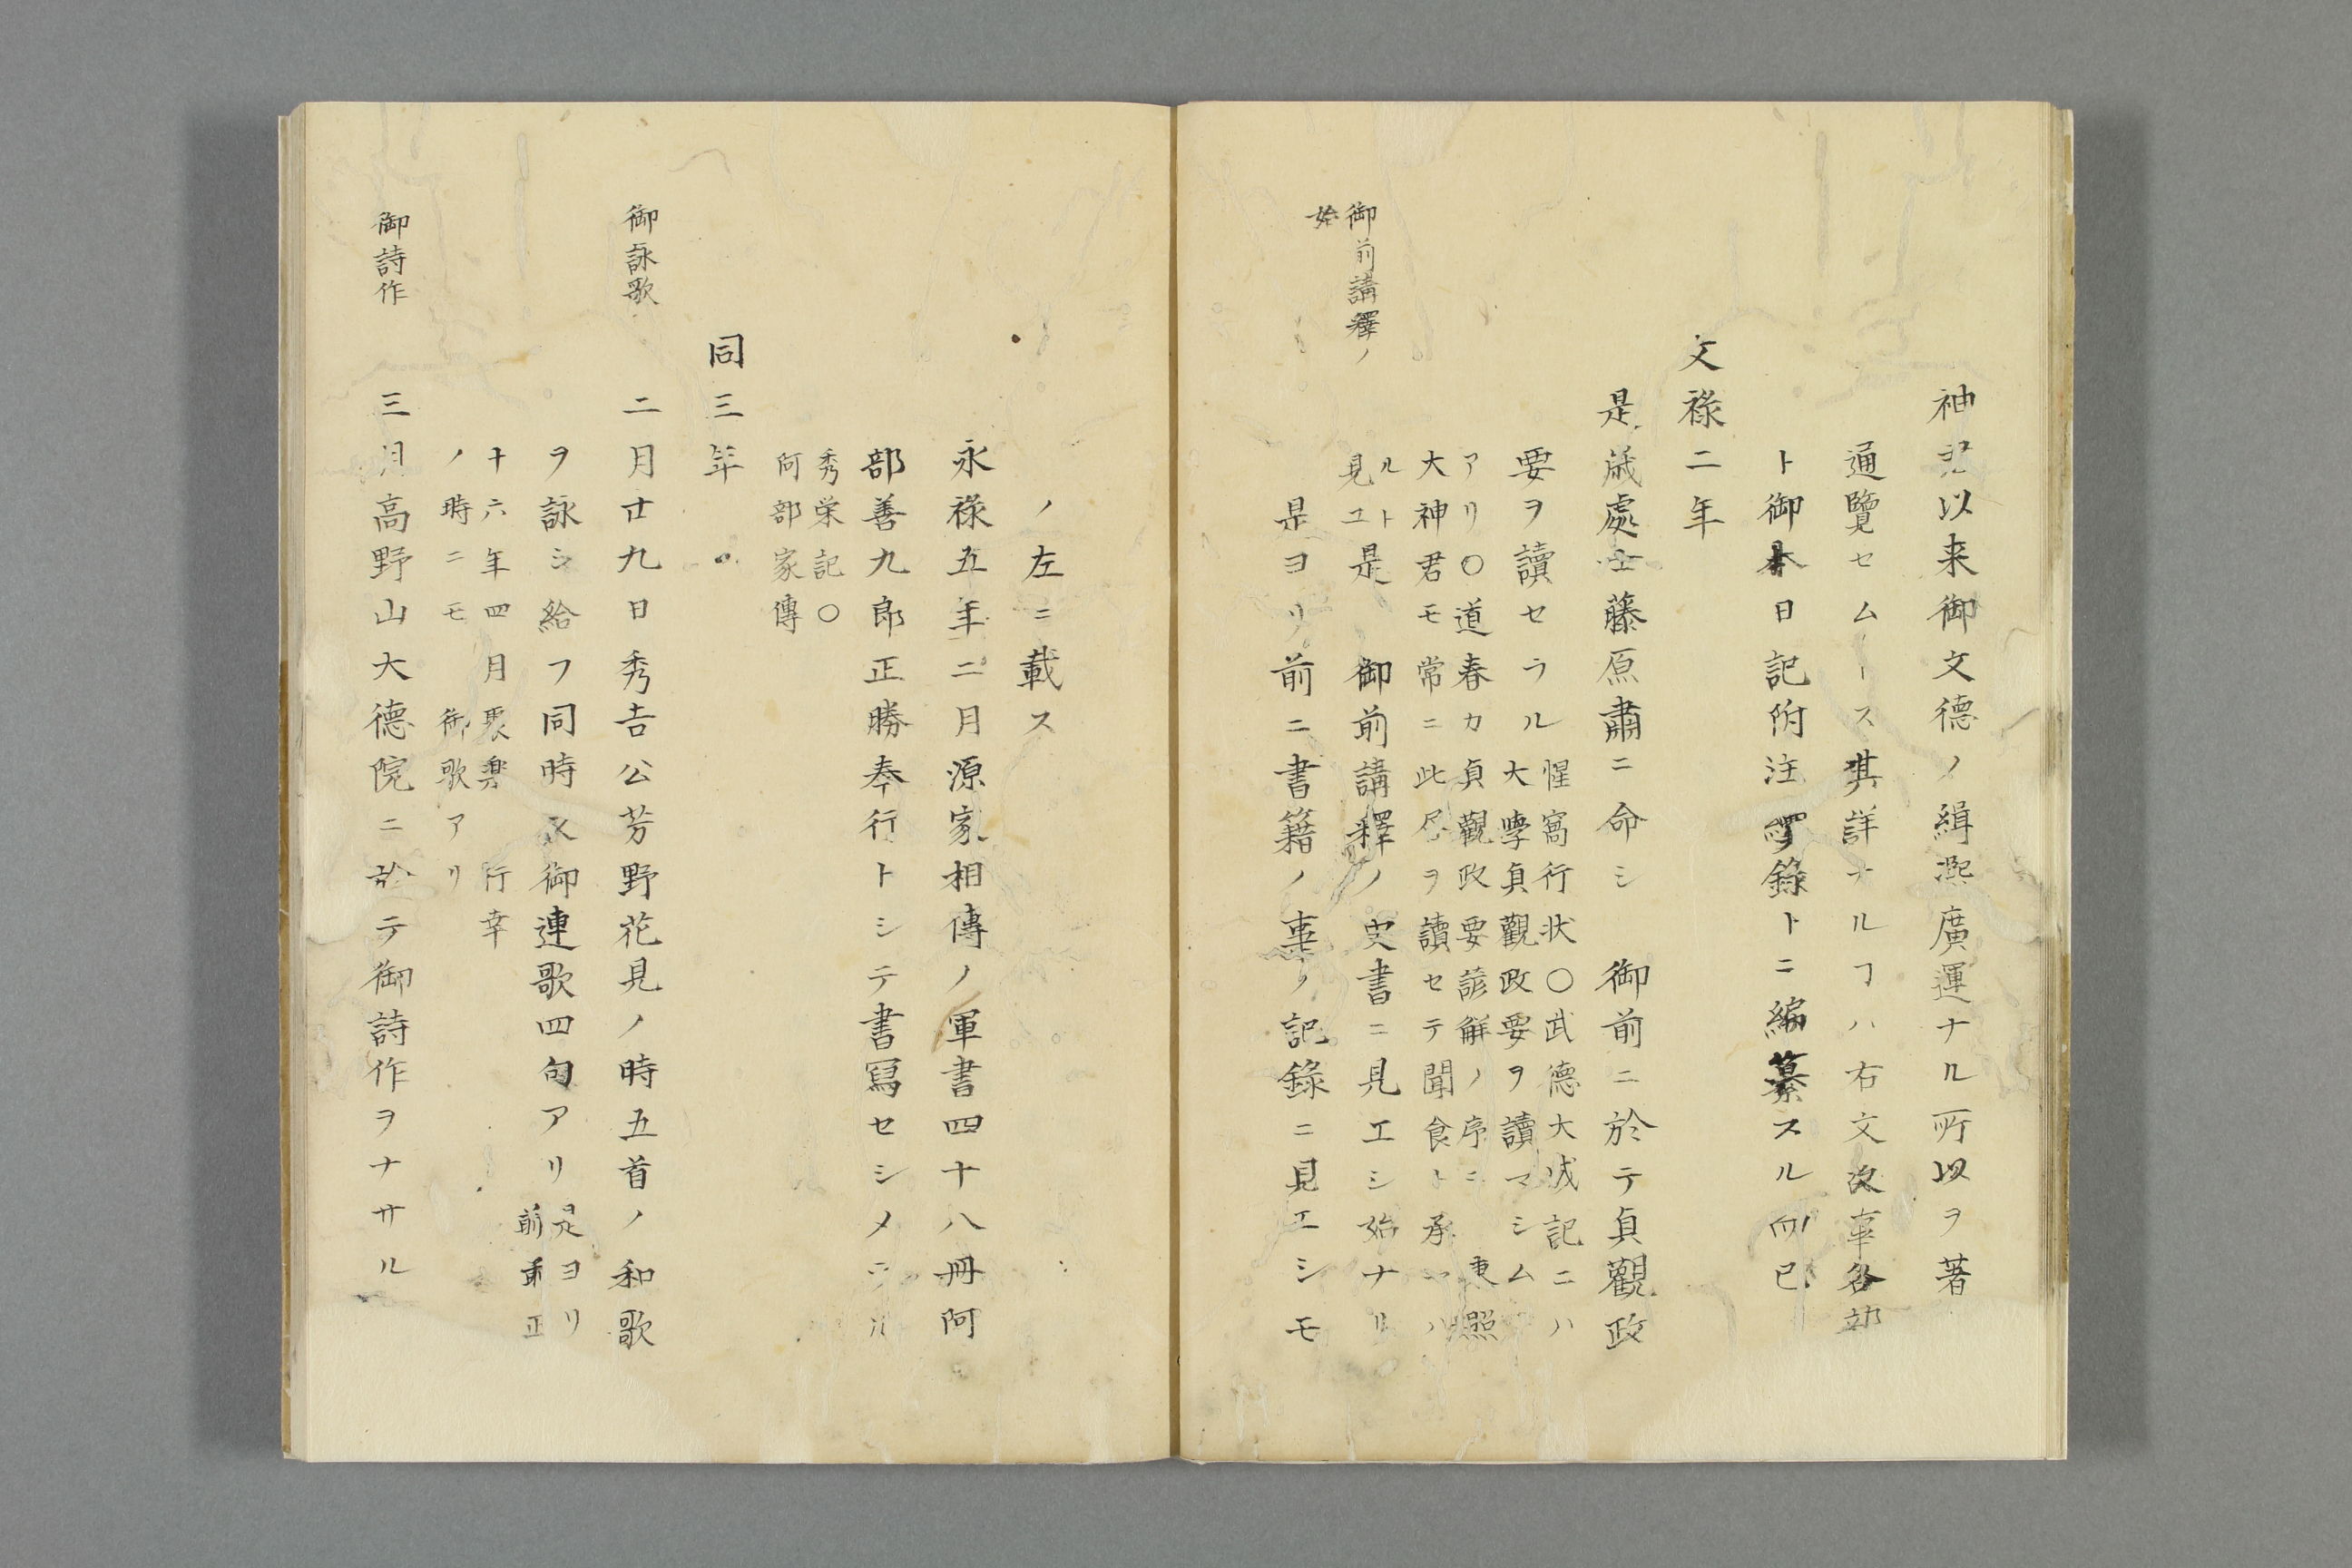 神君以来御文徳ノ緝熙廣運ナル所以ヲ著
通覽セム一ス其詳ナルヿハ右文故事各部
ト御本日記附注ト御寫本譜録トニ編纂スル而已
文禄二年
御前講釋ノ
始
是歳處士藤原肅ニ命シ 御前ニ於テ貞觀政
要ヲ讀セラル
惺窩行状〇武徳大成記ニハ
大學貞觀政要ヲ讀マシム
アリ〇道春カ貞觀政要諺解ノ序ニ 東照
大神君モ常ニ此尽ヲ讀セテ聞食ト承ハ
ルト
見ユ
是 御前講釋ノ史書ニ見エシ始ナリ
是ヨリ前ニ書籍ノ事ノ記録ニ見エシモ
ノ左ニ載ス
永禄五年二月源家相傳ノ軍書四十八冊阿
部善九郎正勝奉行トシテ書寫セシメラル
秀栄記〇
阿部家傳
同三年
御詠歌
二月廿九日秀吉公芳野花見ノ時五首ノ和歌
ヲ詠シ給フ同時又御連歌四句アリ
是ヨリ
前天正
十六年四月聚樂 行幸
ノ時ニモ 御歌アリ
御詩作
三月高野山大徳院ニ於テ御詩作ヲナサル